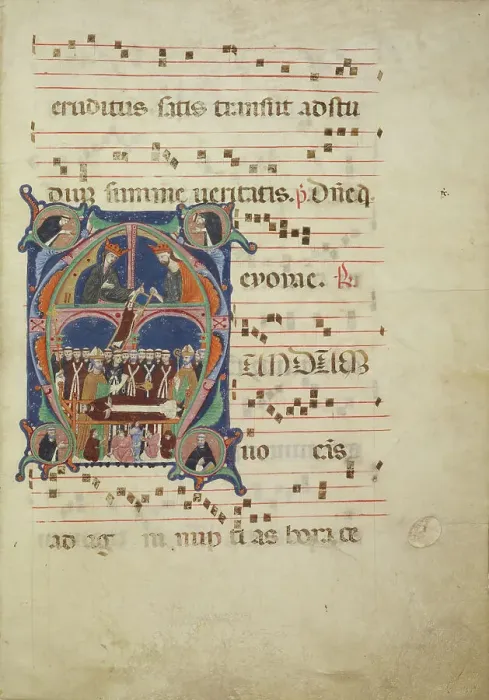 eruditus satis transiit ad stu
dium summe ueritatis. p. Dñe q.
euouae. R
UNDUM
uo cãs
ad ag ni nup ti as hora ce